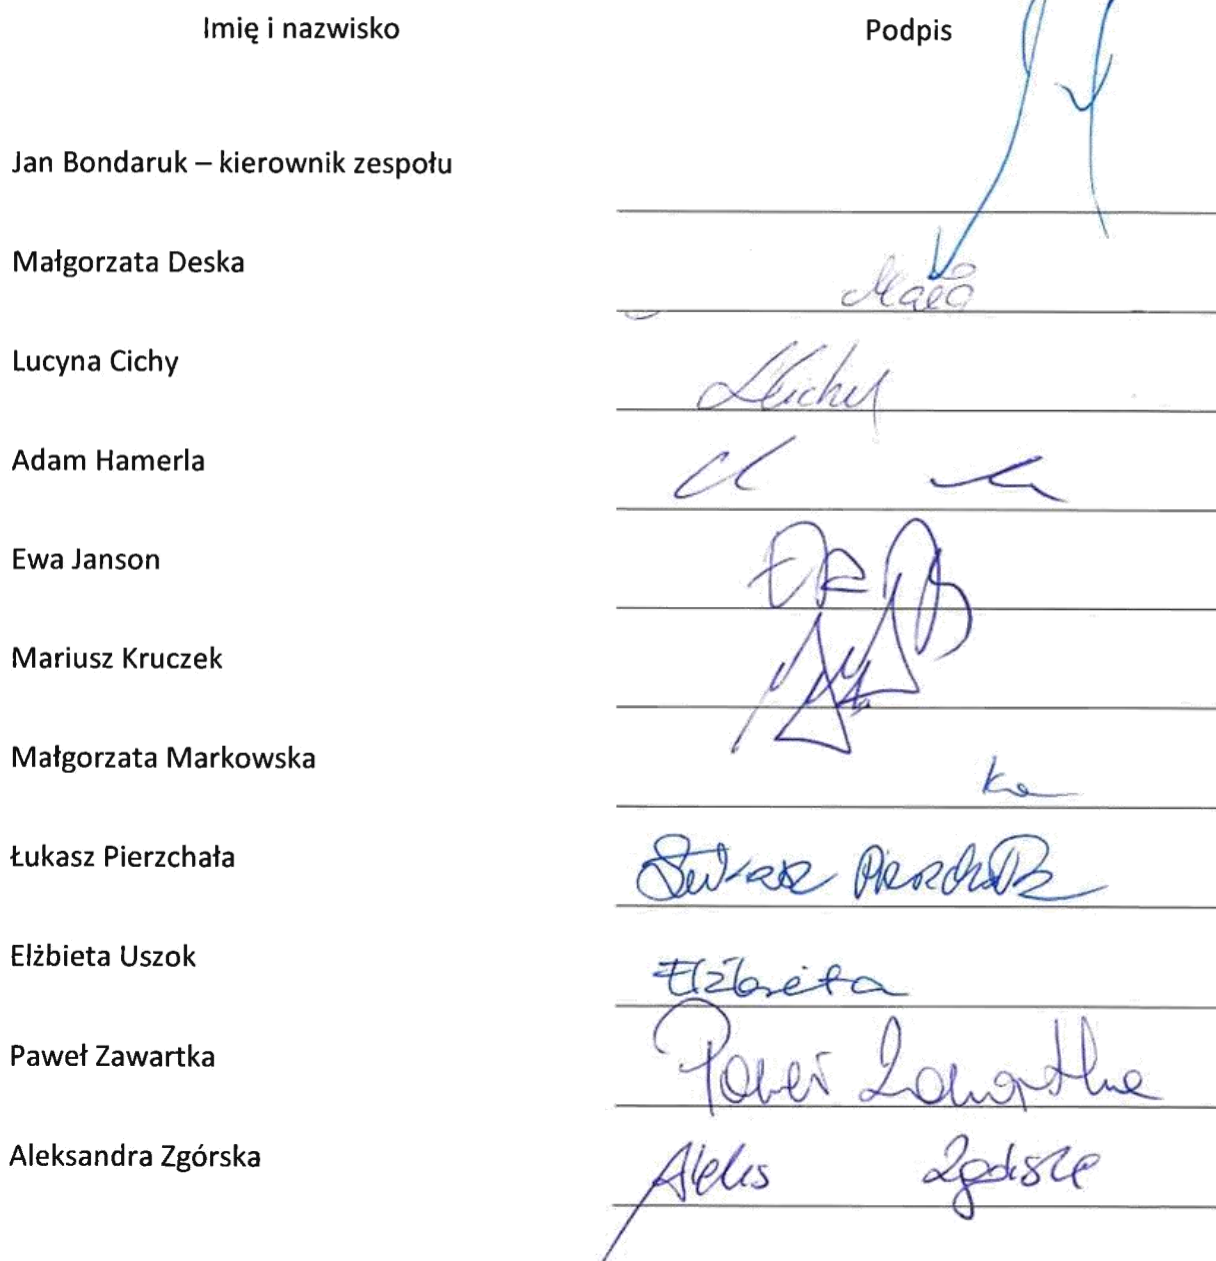 Imię i nazwisko Podpis
Jan Bondaruk – kierownik zespołu
Małgorzata Deska
Lucyna Cichy
Adam Hamerla
Ewa Janson
Mariusz Kruczek
Małgorzata Markowska
Łukasz Pierzchała Łukasz Pierzchała
Elżbieta Uszok Elżbieta
Paweł Zawartka Paweł Zawartka
Aleksandra Zgórska Aleks